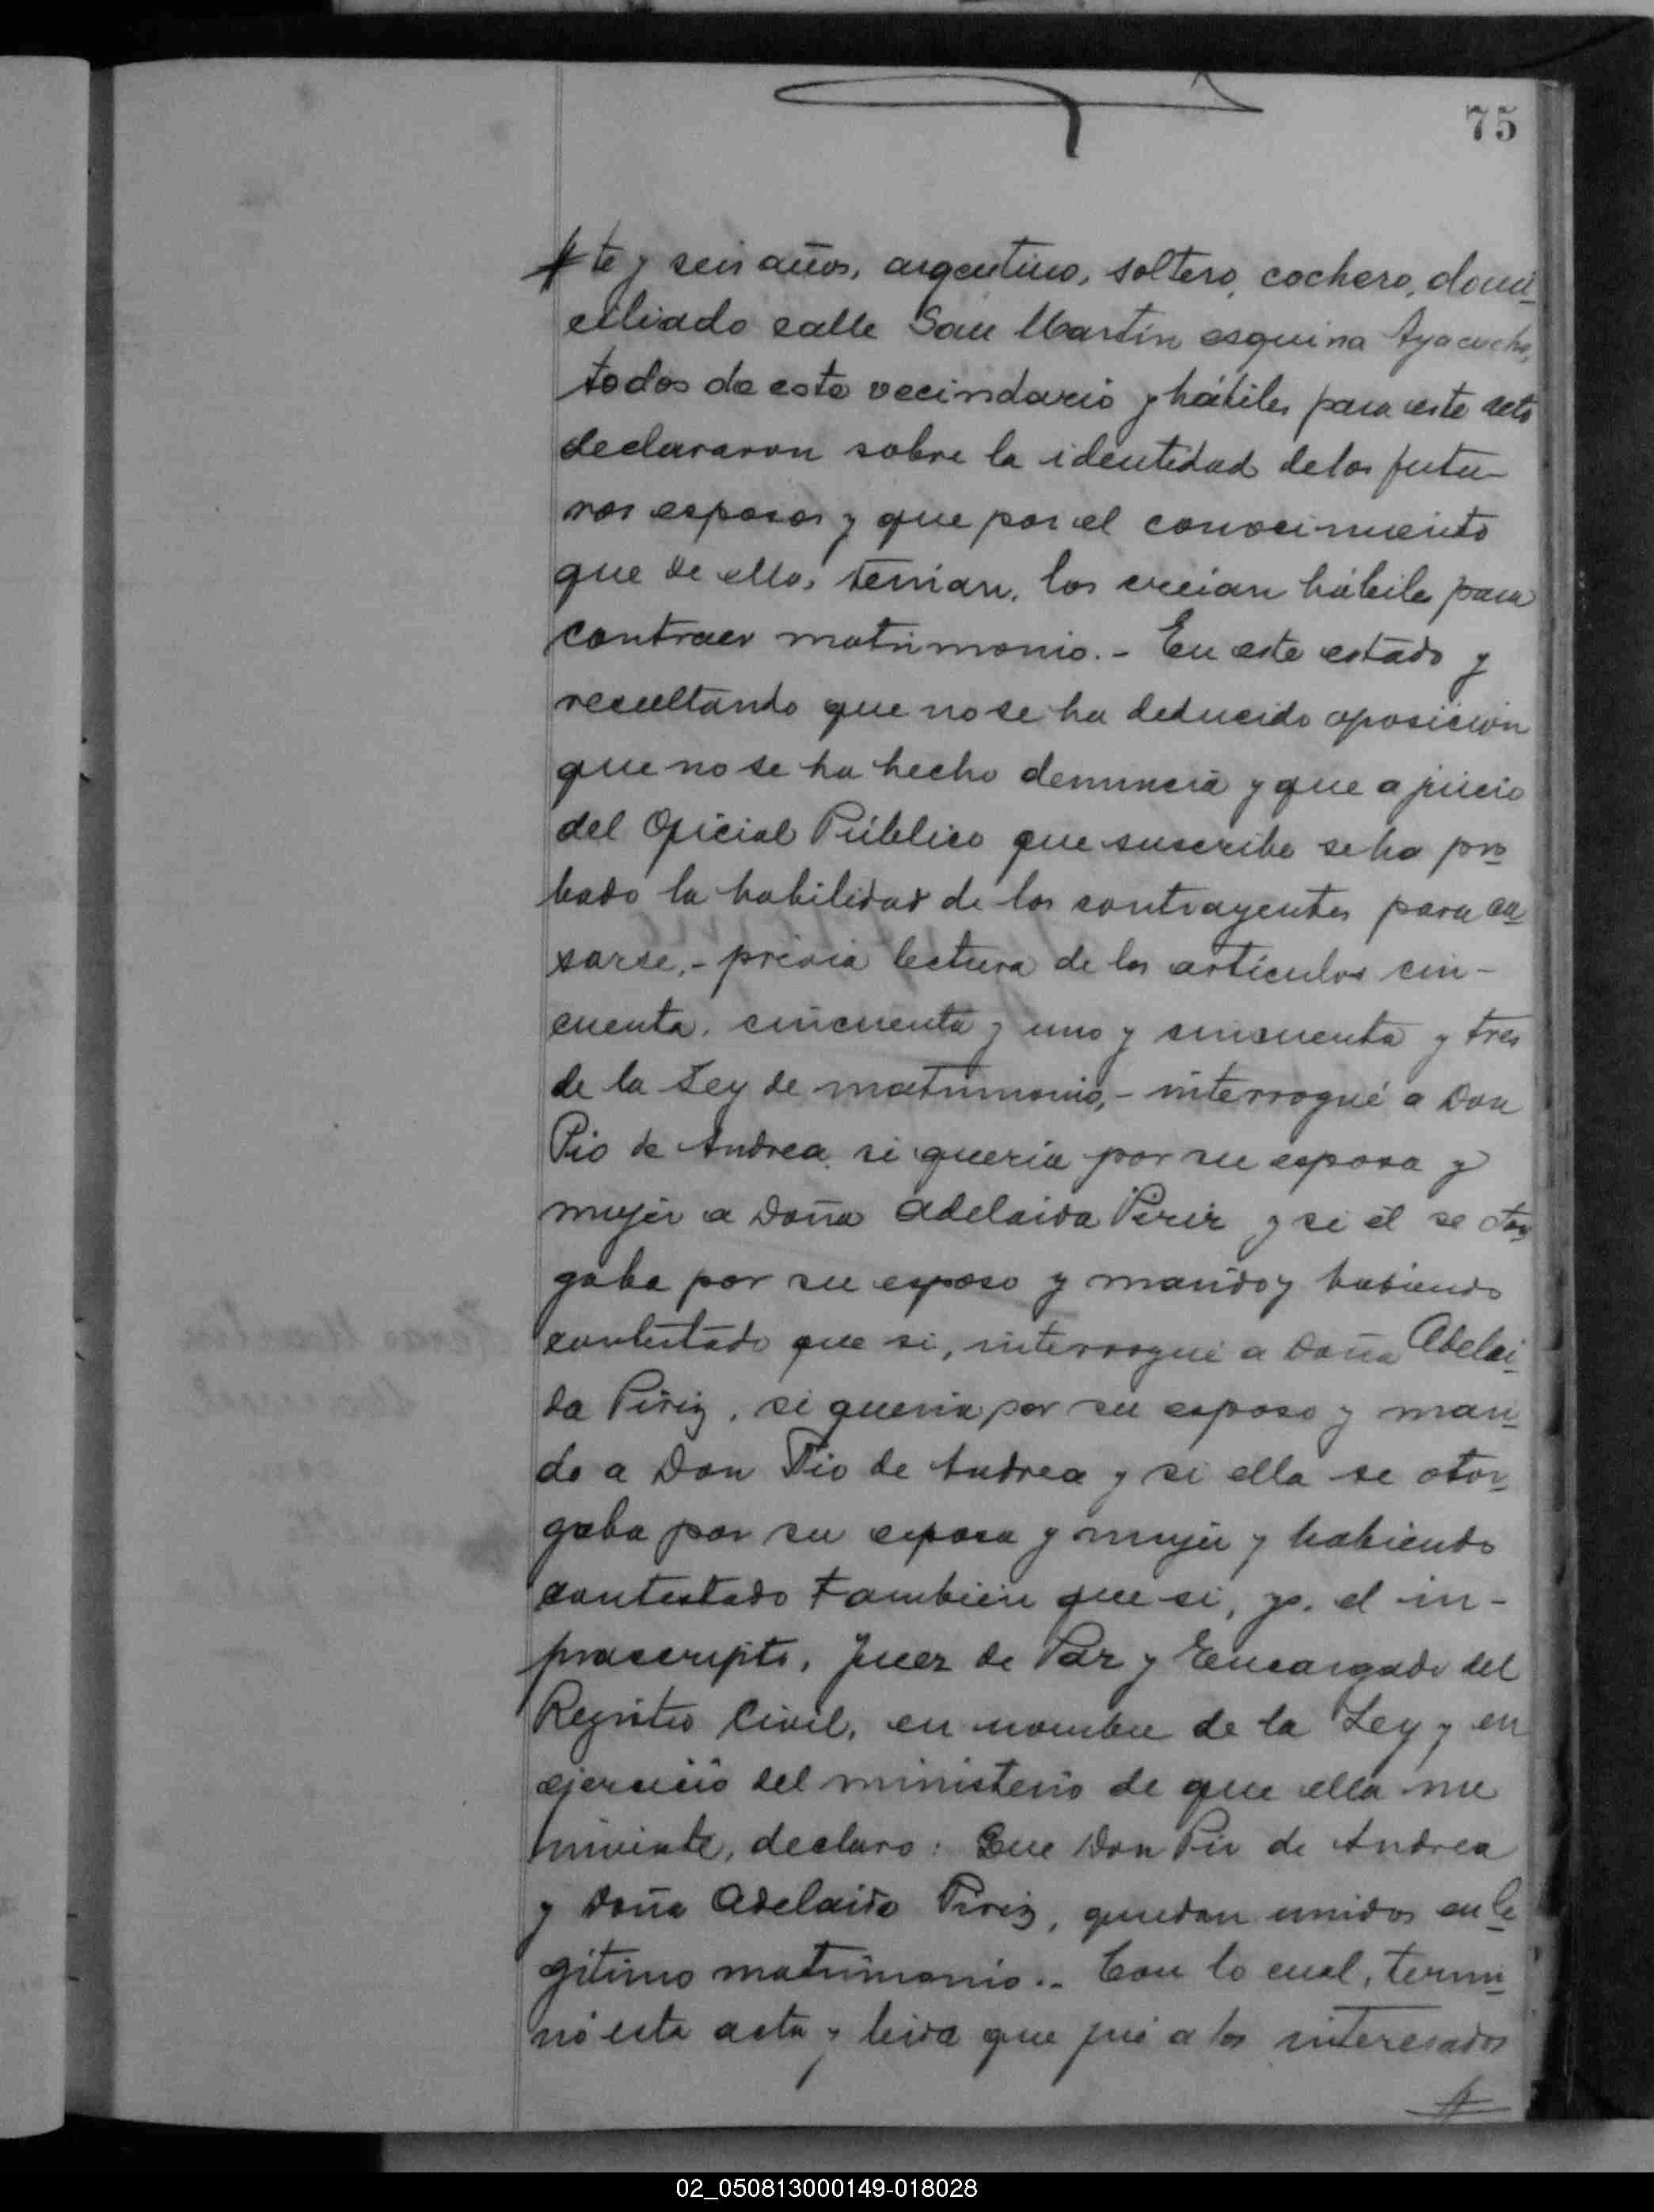 75
te y seis años, argentino, soltero, cochero, domi
ciliado calle San Martín esquina Ayacucho,
todos de este vecindario y hábiles para este acto
declararon sobre la identidad de los futu-
ros esposos y que por el conocimiento
que de ellos tenían, los creían hábiles para
contraer matrimonio.- En este estado y
resultando que no se ha deducido oposición
que no se ha hecho denuncia y que a juicio
del Oficial Público que suscribe se ha pro
bado la habilidad de los contrayentes para ca
sarse,- previa lectura de los artículos cin-
cuenta, cincuenta y uno y cincuenta y tres
de la Ley de matrimonio,- interrogué a Don
Pio de Andrea si quería por su esposa y
mujer a Doña Adelaida Piriz y si él se otor
gaba por su esposo y marido y habiendo
contestado que si, interrogué a Doña Adelai
da Piriz, si quería por su esposo y mari
do a Don Pio de Andrea y si ella se otor
gaba por su esposa y mujer y habiendo
contestado también que si, yo, el in-
frascripto, Juez de Paz y Encargado del
Registro Civil, en nombre de la Ley y en
ejercicio del ministerio de que ella me
inviste, declaro: Que Don Pio de Andrea
y Doña Adelaida Piriz, quedan unidos en le
gítimo matrimonio.- Con lo cual, termi
nó esta acta y leida que fué a los interesados
02_050813000149-018028